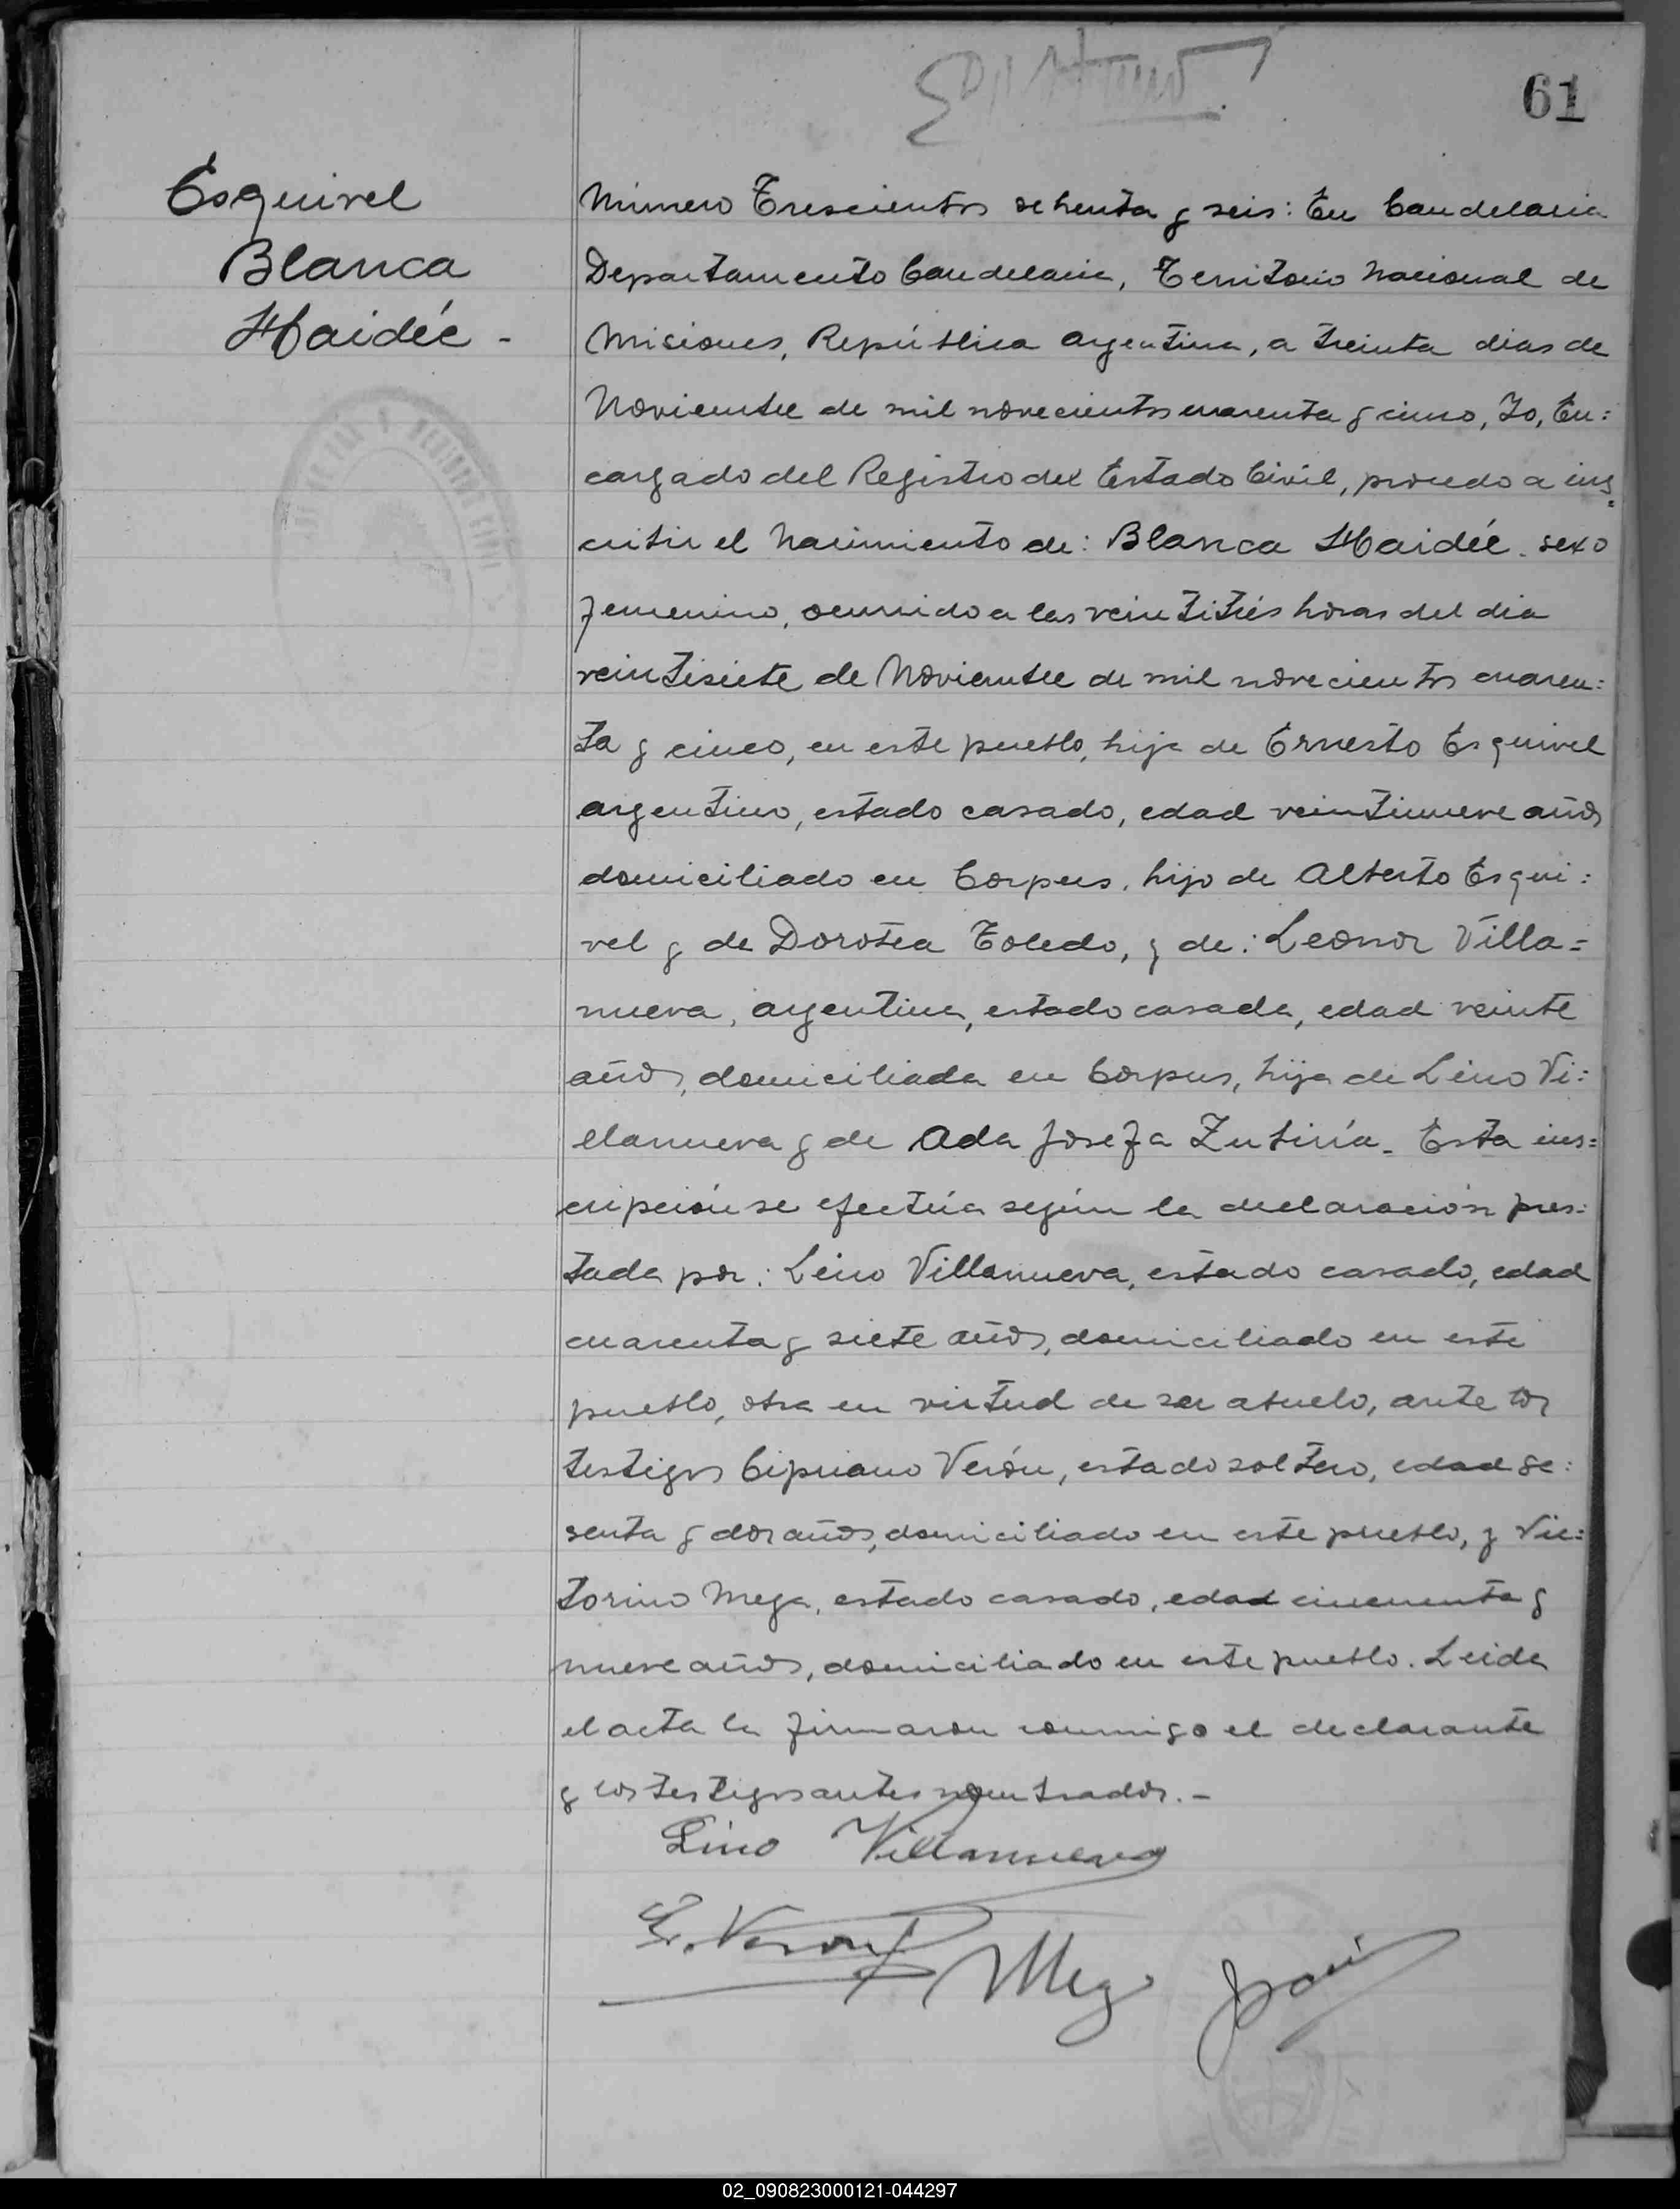 61
Esquivel
Blanca
Haidée -
Número Trescientos setenta y seis: En Candelaria
Departamento Candelaria, Territorio Nacional de
Misiones, República Argentina, a treinta dias de
Noviembre de mil novecientos cuarenta y cinco, Yo, En:
cargado del Registro del Estado Civil, procedo a ins=
cribir el Nacimiento de: Blanca Haidée. sexo
femenino, ocurrido a las veintitrés horas del dia
veintisiete de Noviembre de mil novecientos cuaren:
ta y cinco, en este pueblo, hija de Ernesto Esquivel
argentino, estado casado, edad veintinueve años
domiciliado en Corpus, hijo de Alberto Esqui:
vel y de Dorotea Toledo, y de: Leonor Villa=
nueva, argentina, estado casada, edad veinte
años, domiciliada en Corpus, hija de Lino Vi:
llanueva y de Ada Josefa Zubiría. Esta ins=
cripción se efectúa según la declaración pres:
tada por: Lino Villanueva, estado casado, edad
cuarenta y siete años, domiciliado en este
pueblo, obra en virtud de ser abuelo, ante los
testigos Cipriano Verón, estado soltero, edad se:
senta y dos años, domiciliado en este pueblo, y Vic:
torino Meza, estado casado, edad cincuenta y
nueve años, domiciliado en este pueblo. Leida
el acta la firmaron conmigo el declarante
y los testigos antes nombrados. -
Lino Villanueva
C. Veron
Meza
02_090823000121-044297